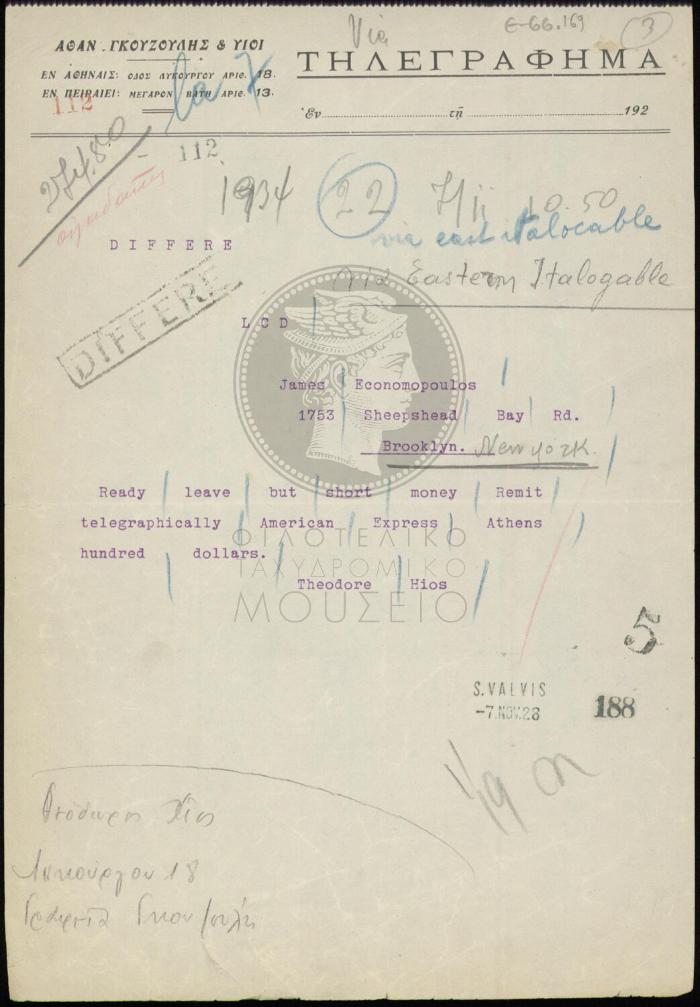 Via
Ε-66.169
3
ΑΘΑΝ. ΓΚΟΥΖΟΥΛΗΣ & ΥΙΟΙ
ΤΗΛΕΓΡΑΦΗΜΑ
ΕΝ ΑΘΗΝΑΙΣ: ΟΔΟΣ ΛΥΚΟΥΡΓΟΥ ΑΡΙΘ. 18.
ΕΝ ΠΕΙΡΑΙΕΙ: ΜΕΓΑΡΟΝ ΒΑΤΗ ΑΡΙΘ. 13.
112
Ἐν τῇ 192
274.80
- 112
1934 22 7/11 10.50
via east italocable
DIFFERE
via Eastern Italogable
DIFFERE
LCD
James Economopoulos
1753 Sheepshead Bay Rd.
Brooklyn. New york.
Ready leave but short money Remit
telegraphically American Express Athens
hundred dollars.
Theodore Hios
ΦΙΛΟΤΕΛΙΚΟ
ΤΑΧΥΔΡΟΜΙΚΟ
ΜΟΥΣΕΙΟ
5
S. VALVIS
-7. NOV. 28
188
Θεόδωρος Χίος
Λυκούργου 18
Γραφεία Γκουζούλη